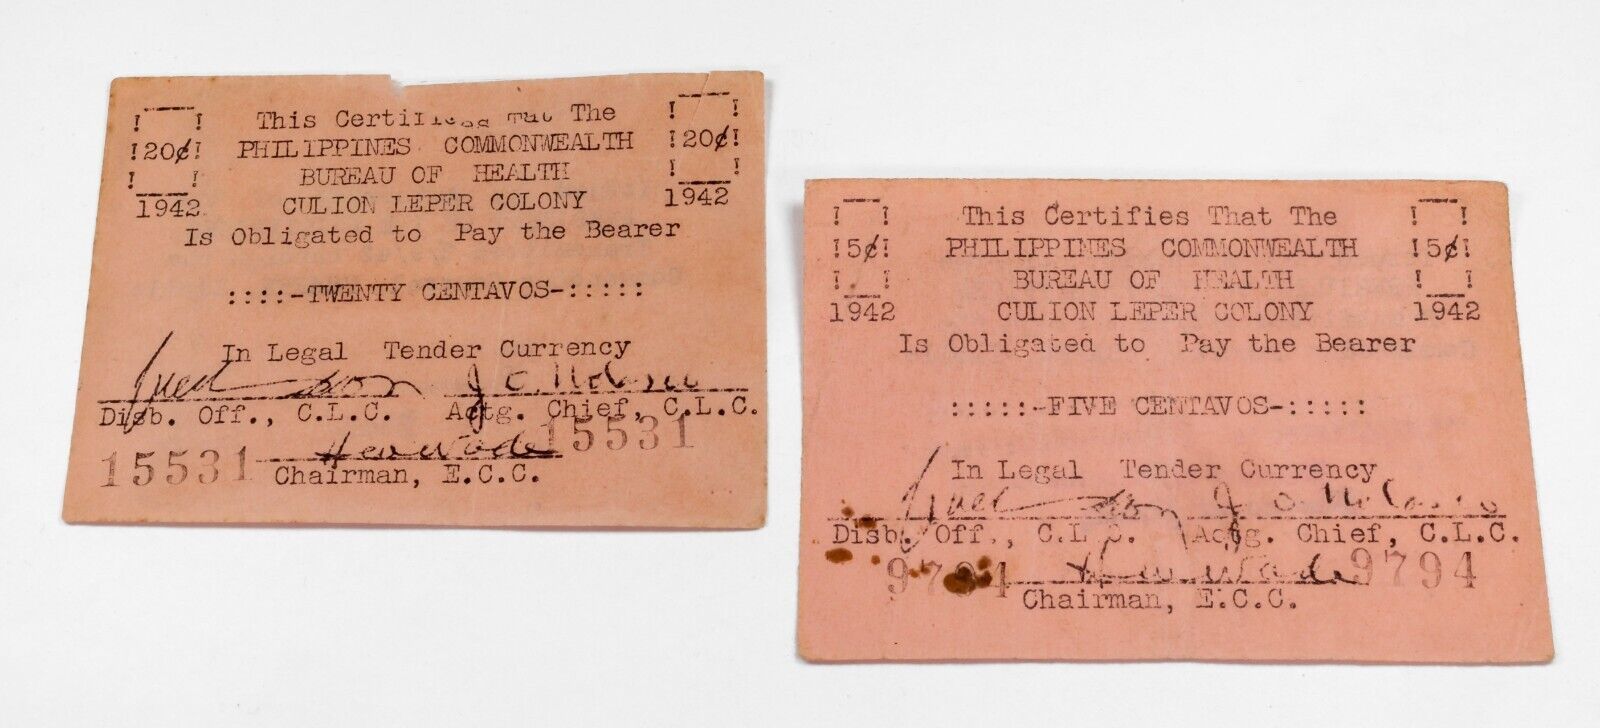 This Certifies That The
!20¢! PHILIPPINES COMMONWEALTH !20¢!
BUREAU OF HEALTH
1942 CULION LEPER COLONY 1942
Is Obligated to Pay the Bearer
::::-TWENTY CENTAVOS-:::::
In Legal Tender Currency
Disb. Off., C.L.C. Actg. Chief, C.L.C.
15531 15531
Chairman, E.C.C.
This Certifies That The
!5¢! PHILIPPINES COMMONWEALTH !5¢!
BUREAU OF HEALTH
1942 CULION LEPER COLONY 1942
Is Obligated to Pay the Bearer
:::::-FIVE CENTAVOS-:::::
In Legal Tender Currency
Disb. Off., C.L.C. Actg. Chief, C.L.C.
9794 9794
Chairman, E.C.C.